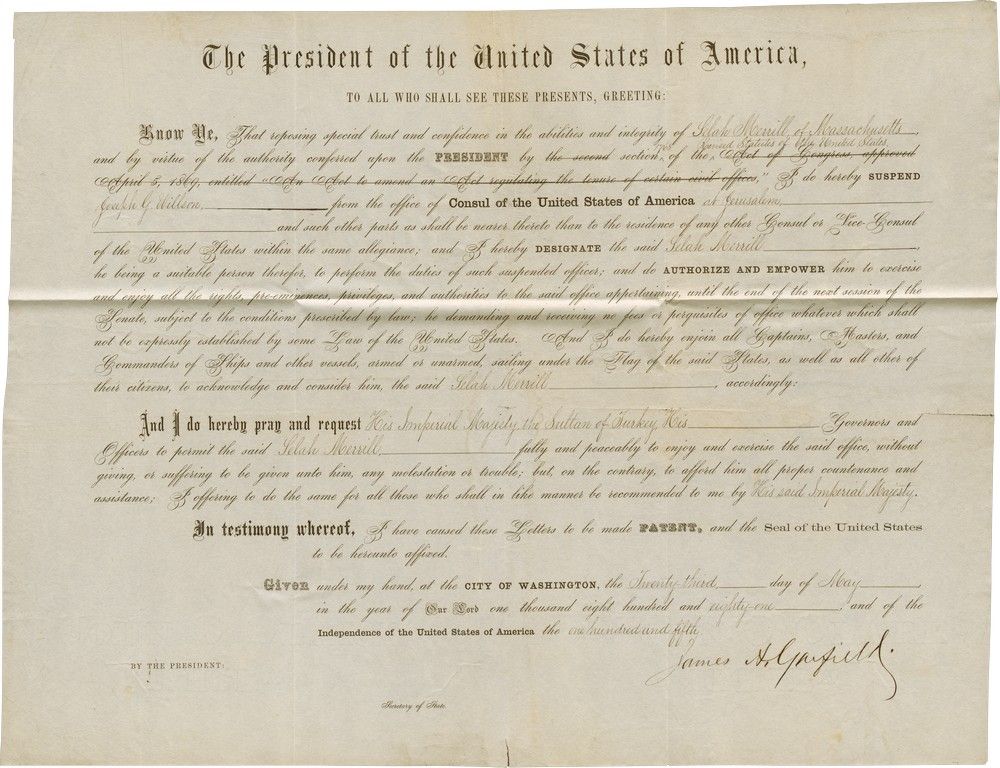 The President of the United States of America,
TO ALL WHO SHALL SEE THESE PRESENTS, GREETING:
Know Ye, That reposing special trust and confidence in the abilities and integrity of Selah Merrill, of Massachusetts
Revised Statutes of the United States,
and by virtue of the authority conferred upon the PRESIDENT by the second section of the Act of Congress, approved
April 5, 1869, entitled "An Act to amend an Act regulating the tenure of certain civil offices," I do hereby SUSPEND
Joseph G. Willson, from the office of Consul of the United States of America at Jerusalem
and such other parts as shall be nearer thereto than to the residence of any other Consul or Vice-Consul
of the United States within the same allegiance; and I hereby DESIGNATE the said Selah Merrill,
he being a suitable person therefor, to perform the duties of such suspended officer; and do AUTHORIZE AND EMPOWER him to exercise
and enjoy all the rights, pre-eminences, privileges, and authorities to the said office appertaining, until the end of the next session of the
Senate, subject to the conditions prescribed by law; he demanding and receiving no fees or perquisites of office whatever which shall
not be expressly established by some Law of the United States. And I do hereby enjoin all Captains, Masters, and
Commanders of Ships and other vessels, armed or unarmed, sailing under the Flag of the said States, as well as all other of
their citizens, to acknowledge and consider him, the said Selah Merrill, accordingly:
And I do hereby pray and request His Imperial Majesty the Sultan of Turkey, His Governors and
Officers to permit the said Selah Merrill, fully and peaceably to enjoy and exercise the said office, without
giving, or suffering to be given unto him, any molestation or trouble; but, on the contrary, to afford him all proper countenance and
assistance; I offering to do the same for all those who shall in like manner be recommended to me by His said Imperial Majesty.
In testimony whereof, I have caused these Letters to be made PATENT, and the Seal of the United States
to be hereunto affixed.
Given under my hand, at the CITY OF WASHINGTON, the Twenty third day of May,
in the year of Our Lord one thousand eight hundred and eighty-one, and of the
Independence of the United States of America the one hundred and fifth.
James A. Garfield.
BY THE PRESIDENT:
Secretary of State.